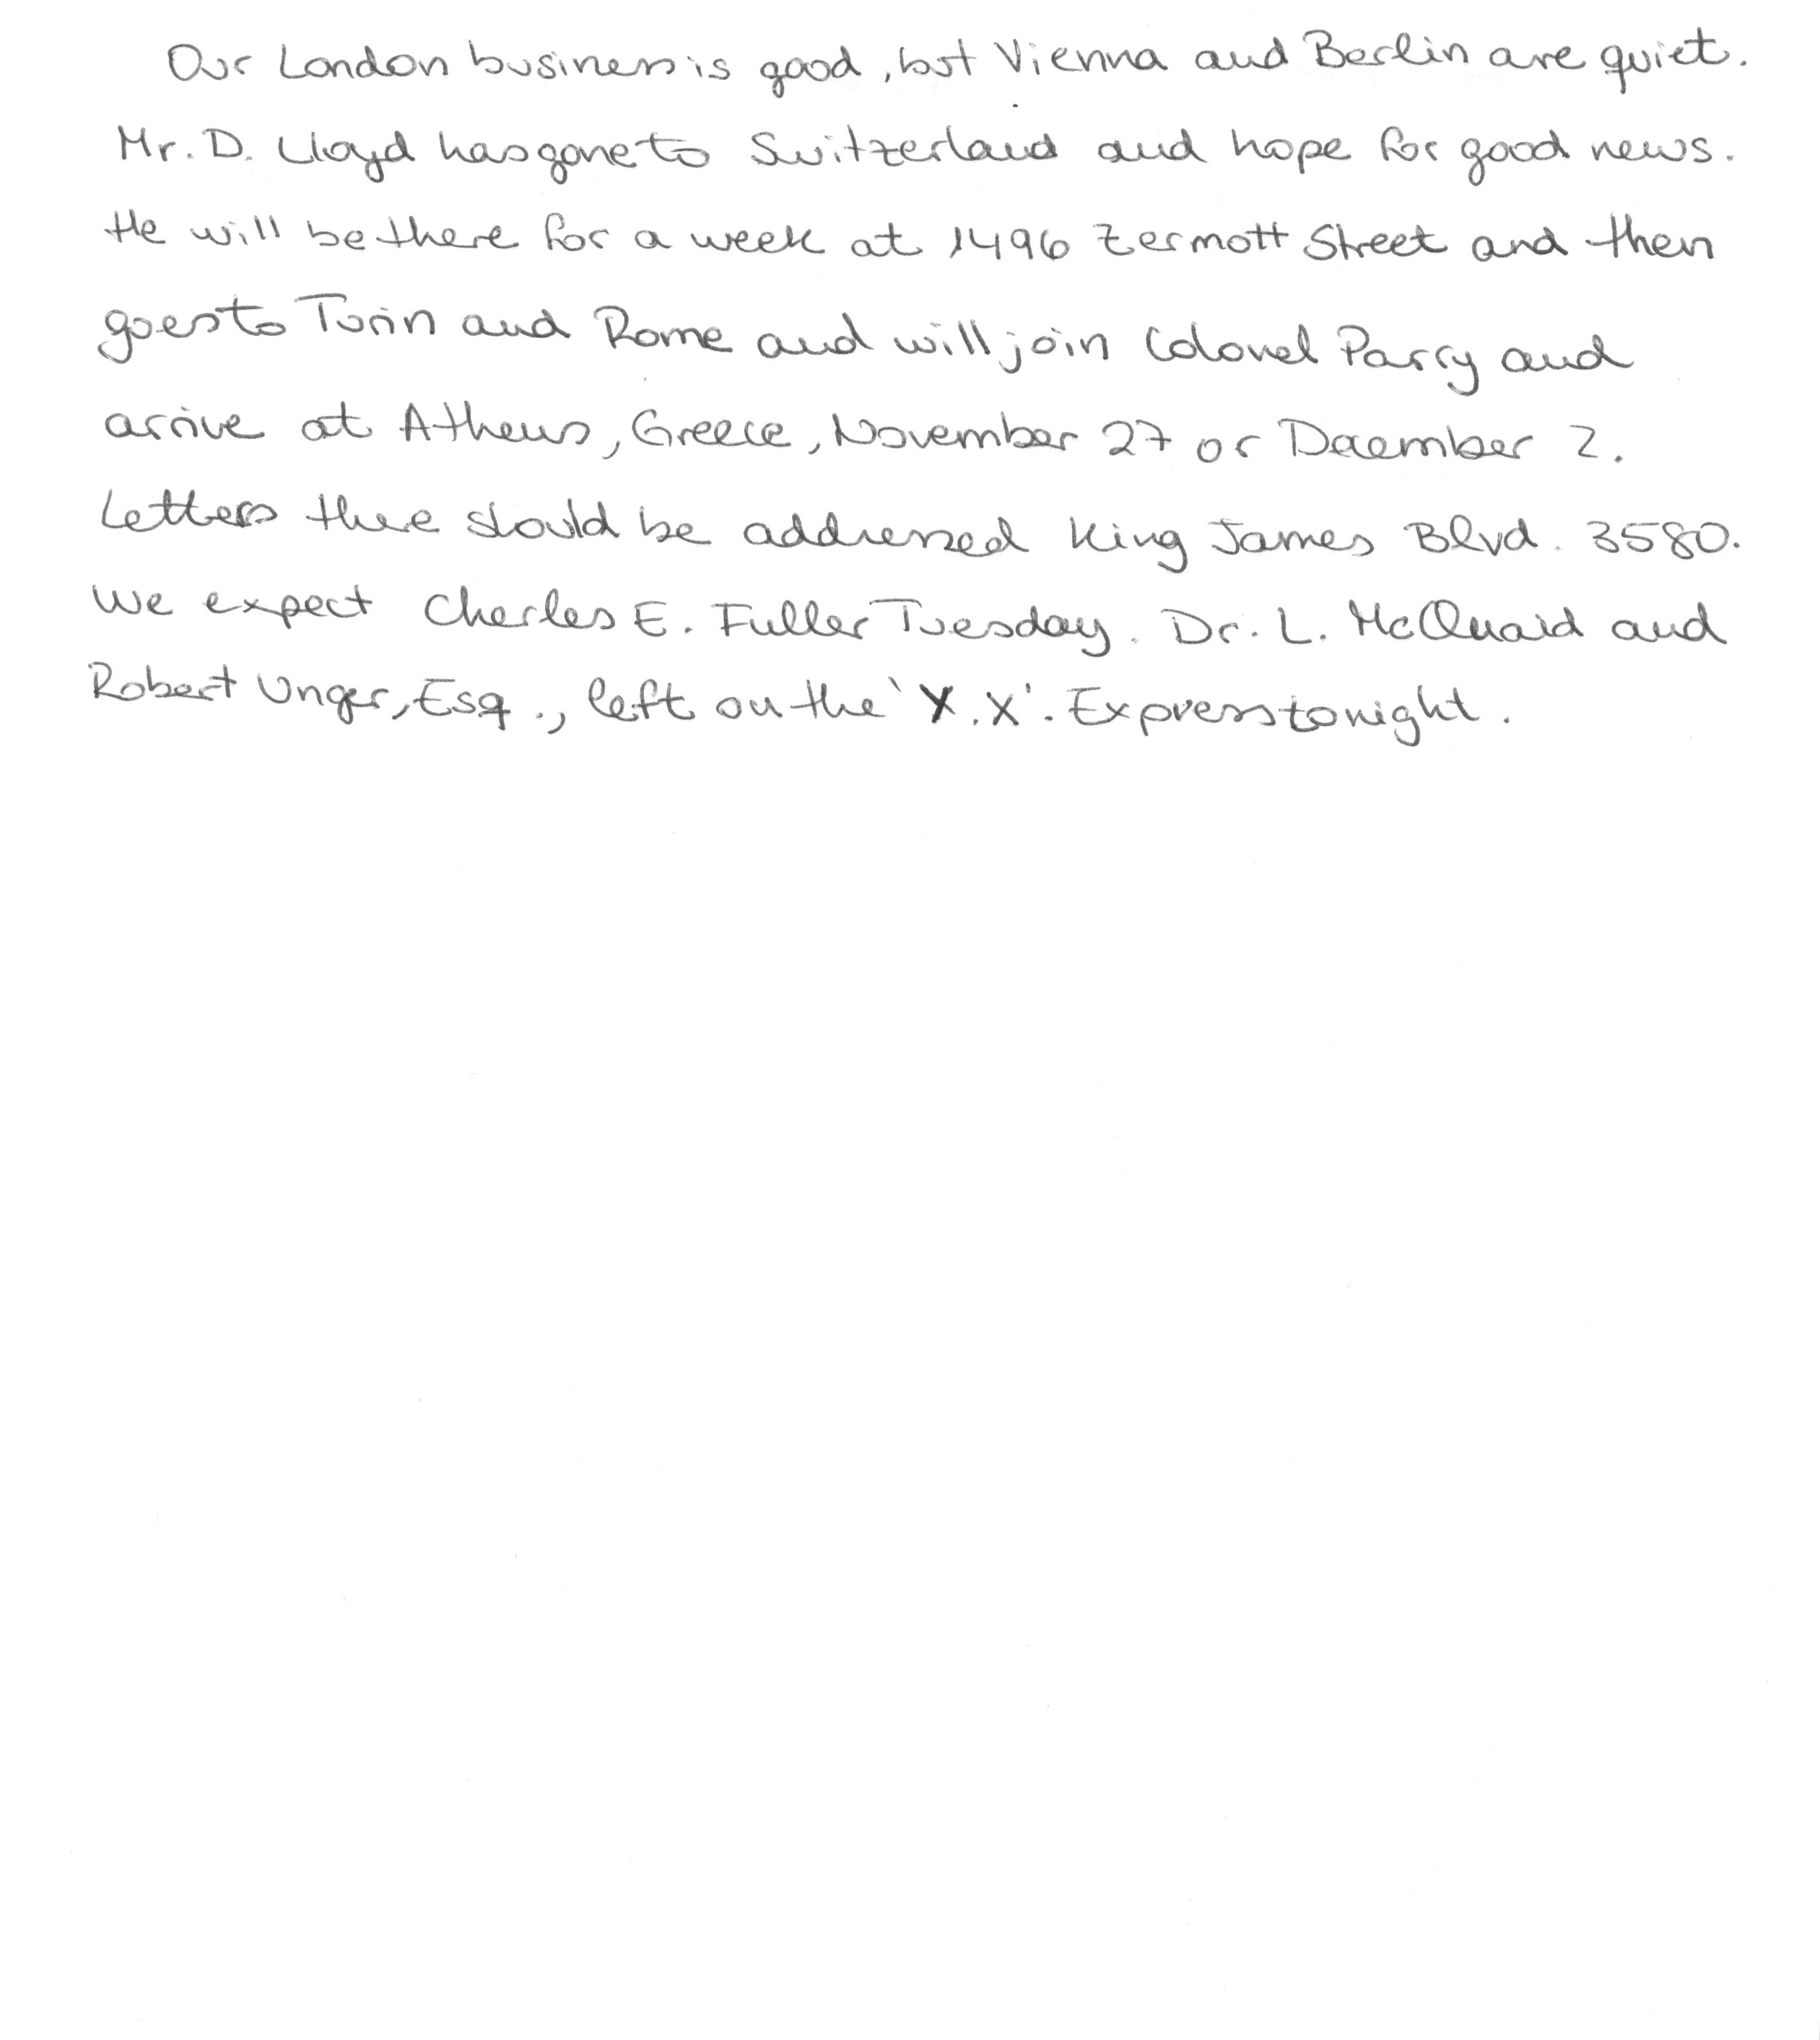 Our London business is good, but Vienna and Berlin are quiet.
Mr. D. Lloyd has gone to Switzerland and hope for good news.
He will be there for a week at 1496 Zermott Street and then
goes to Turin and Rome and will join Colonel Parry and
arrive at Athens, Greece, November 27 or December 2.
Letters there should be addressed King James Blvd. 3580.
We expect Charles E. Fuller Tuesday. Dr. L. McQuaid and
Robert Unger, Esq., left on the 'X.X'. Express tonight.